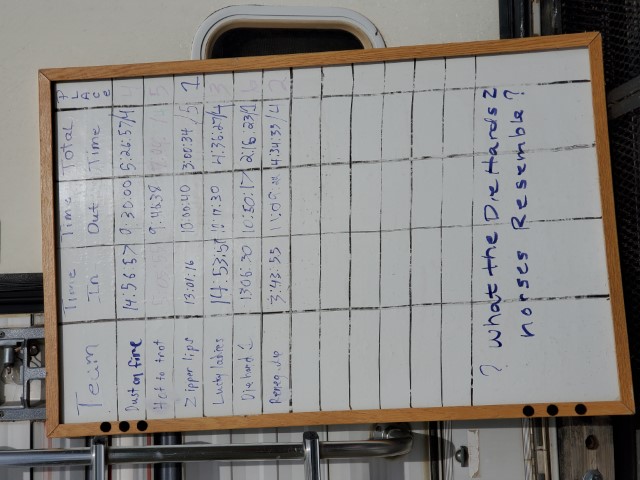 Team Time In Time Out Total Time PLACE
Dust on fire 14:56:57 9:30:00 5:26:57/4
Hot to trot 9:45:38 5
Zipper lips 13:01:16 10:00:40 3:00:34/5 1
Lucky ladies 14:53:57 10:17:30 4:36:27/4 3
Die hard 13:06:20 10:50:17 2:16:23/1 6
3:43:55 4:34:33/4 2
? What the Die Hards 2
norses Resemble ?